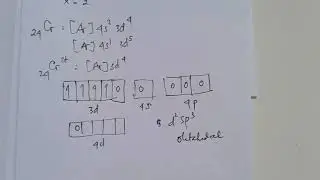 x = 2
24 Cr : [Ar] 4s² 3d⁴
[Ar] 4s¹ 3d⁵
24 Cr²⁺ : [Ar] 3d⁴
1 1 1 1 0 0 0 0 0
3d 4s 4p
0
4d
d²sp³
octahedral